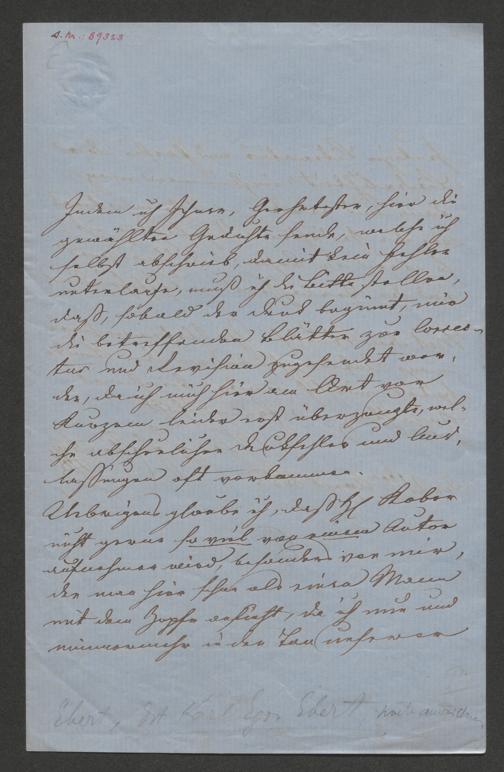 A.N.: 89323
Indem ich Ihnen, Geehrtester, hier die
gewählten Gedichte sende, welche ich
selbst abschrieb, damit kein Fehler
unterlaufe, muß ich die Bitte stellen,
daß, sobald der Druck beginnt, mir
die betreffenden Blätter zur Correc-
tur und Revision zugesendet wer-
den, da ich mich hier am Ort vor
Kurzem leider erst überzeugte, wel-
che abscheulichen Druckfehler und Aus-
lassungen oft vorkommen.
Uebrigens glaube ich, daß H Kober
nicht gerne so viel von einem Autor
aufnehmen wird, besonders von mir,
den man hier schon als einen Mann
mit dem Zopfe ansieht, da ich nie und
nimmermehr in den Ton unserer
Ebert, Karl Egon Ebert